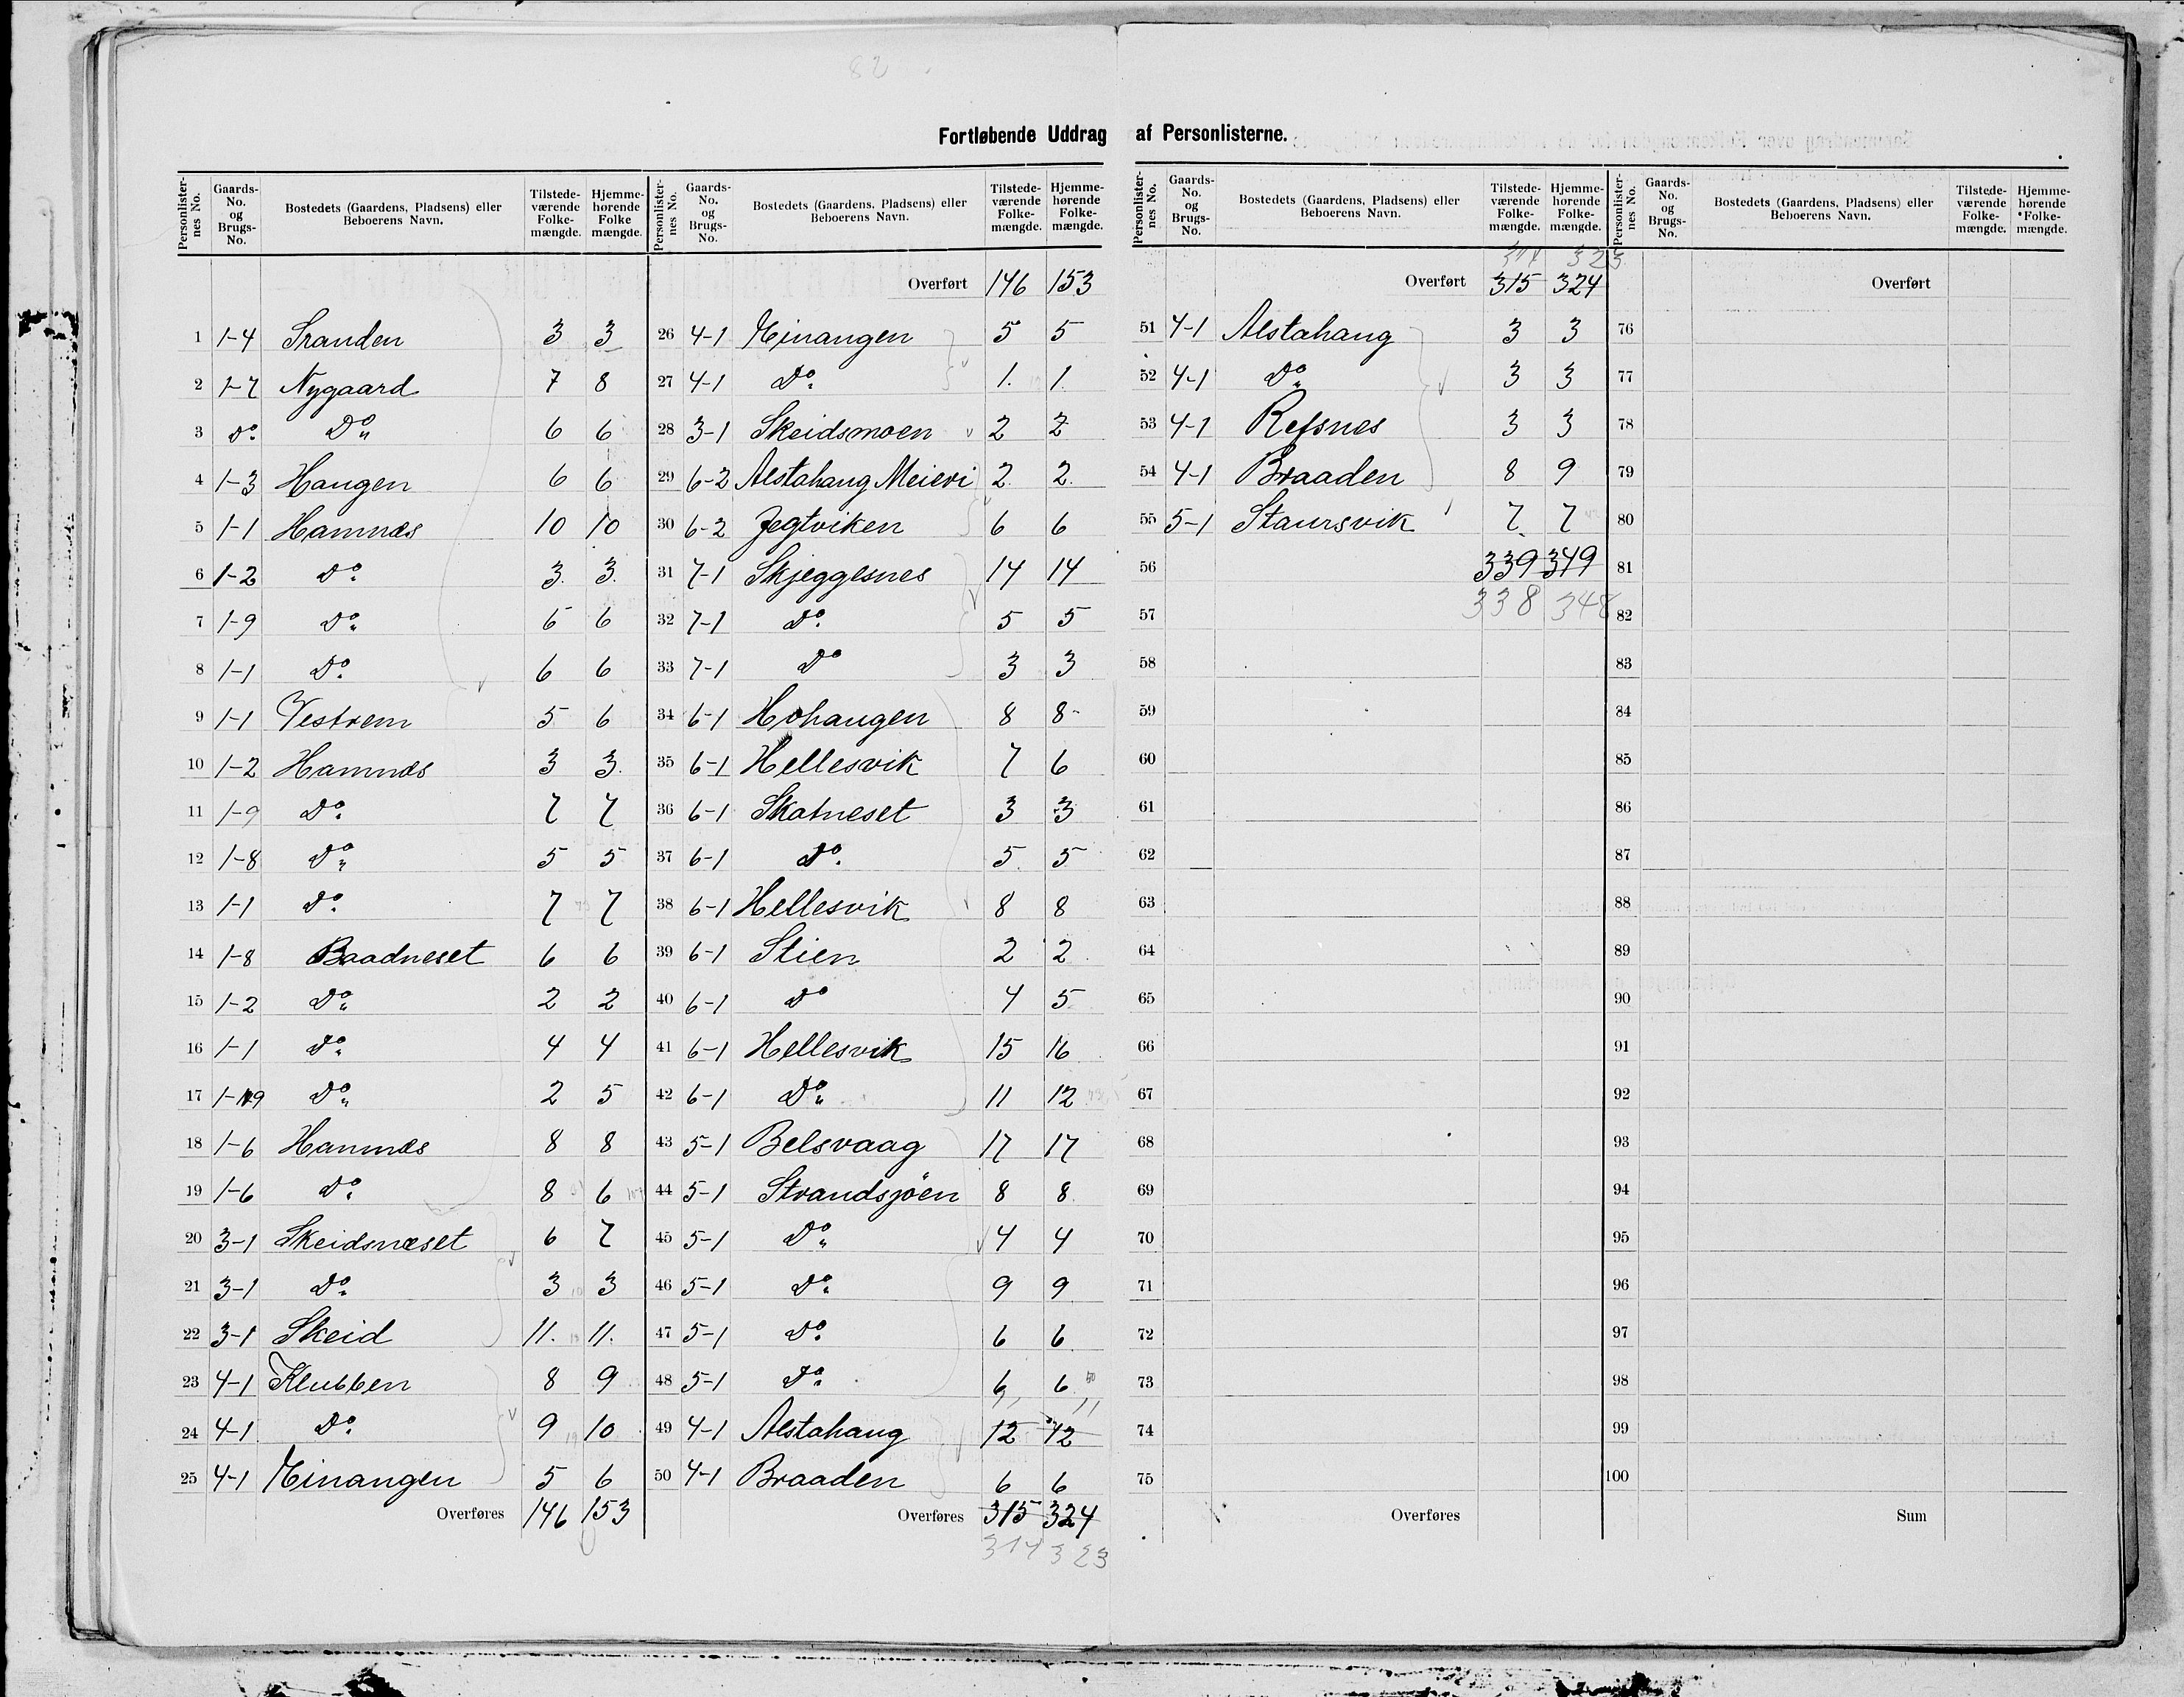 82
Fortløbende Uddrag af Personlisterne.
Personlister-nes No. | Gaards-No. og Brugs-No. | Bostedets (Gaardens, Pladsens) eller Beboerens Navn. | Tilstede-værende Folke-mængde. | Hjemme-hørende Folke mængde.
1 1-4 Sranden 3 3
2 1-7 Nygaard 7 8
3 Do. Do. 6 6
4 1-3 Haugen 6 6
5 1-1 Hamnæs 10 10
6 1-2 Do. 3. 3.
7 1-9 Do. 6 6
8 1-1 Do. 6 6
9 1-1 Vestrem 5 6
10 1-2 Hamnæs 3 3.
11 1-9 Do. 7 7
12 1-8 Do. 5 5
13 1-1 Do. 7 7
14 1-8 Baadneset 6 6
15 1-2 Do. 2 2
16 1-1 Do. 4 4
17 1-19 Do. 2 5
18 1-6 Hamnæs 8 8
19 1-6 Do. 8 6
20 3-1 Skeidsnæset 6 7
21 3-1 Do. 3 3
22 3-1 Skeid 11. 11.
23 4-1 Klubben 8 9
24 4-1 Do. 9 10
25 4-1 Minangen 5 6
Overføres 146 153
Personlister-nes No. | Gaards-No. og Brugs-No. | Bostedets (Gaardens, Pladsens) eller Beboerens Navn. | Tilstede-værende Folke-mængde. | Hjemme-hørende Folke-mængde.
Overført 146 153
26 4-1 Minangen 5 5
27 4-1 Do. 1. 1.
28 3-1 Skeidsmoen 2 2
29 6-2 Alstahaug Meieri 2. 2.
30 6-2 Jegtviken 6 6
31 7-1 Skjeggesnes 14 14
32 7-1 Do. 5 5
33 7-1 Do 3 3
34 6-1 Hohaugen 8 8
35 6-1 Hellesvik 7 6
36 6-1 Skatneset 3 3
37 6-1 Do. 5 5
38 6-1 Hellesvik 8 8
39 6-1 Stien 2 2
40 6-1 Do 4 5
41 6-1 Hellesvik 15 16
42 6-1 Do. 11 12
43 5-1 Belsvaag 17 17
44 5-1 Strandsjöen 8 8
45 5-1 Do. 4 4
46 5-1 Do. 9 9
47 5-1 Do. 6 6
48 5-1 Do. 6 6
11 11
49 4-1 Alstahaug 12 12
50 4-1 Braaden 6 6
Overføres 315 324
314 323
Personlister-nes No. | Gaards-No. og Brugs-No. | Bostedets (Gaardens, Pladsens) eller Beboerens Navn. | Tilstede-værende Folke-mængde. | Hjemme-hørende Folke-mængde.
314 323
Overført 315 324
51 4-1 Alstahaug 3 3
52 4-1 Do. 3 3
53 4-1 Refsnes 3 3
54 4-1 Braaden 8 9
55 5-1 Staursvik 7 7
56 339 349
57 338 348
58
59
60
61
62
63
64
65
66
67
68
69
70
71
72
73
74
75
Overføres
Personlister-nes No. | Gaards-No. og Brugs-No. | Bostedets (Gaardens, Pladsens) eller Beboerens Navn. | Tilstede-værende Folke-mængde. | Hjemme-hørende Folke-mængde.
Overført
76
77
78
79
80
81
82
83
84
85
86
87
88
89
90
91
92
93
94
95
96
97
98
99
100
Sum